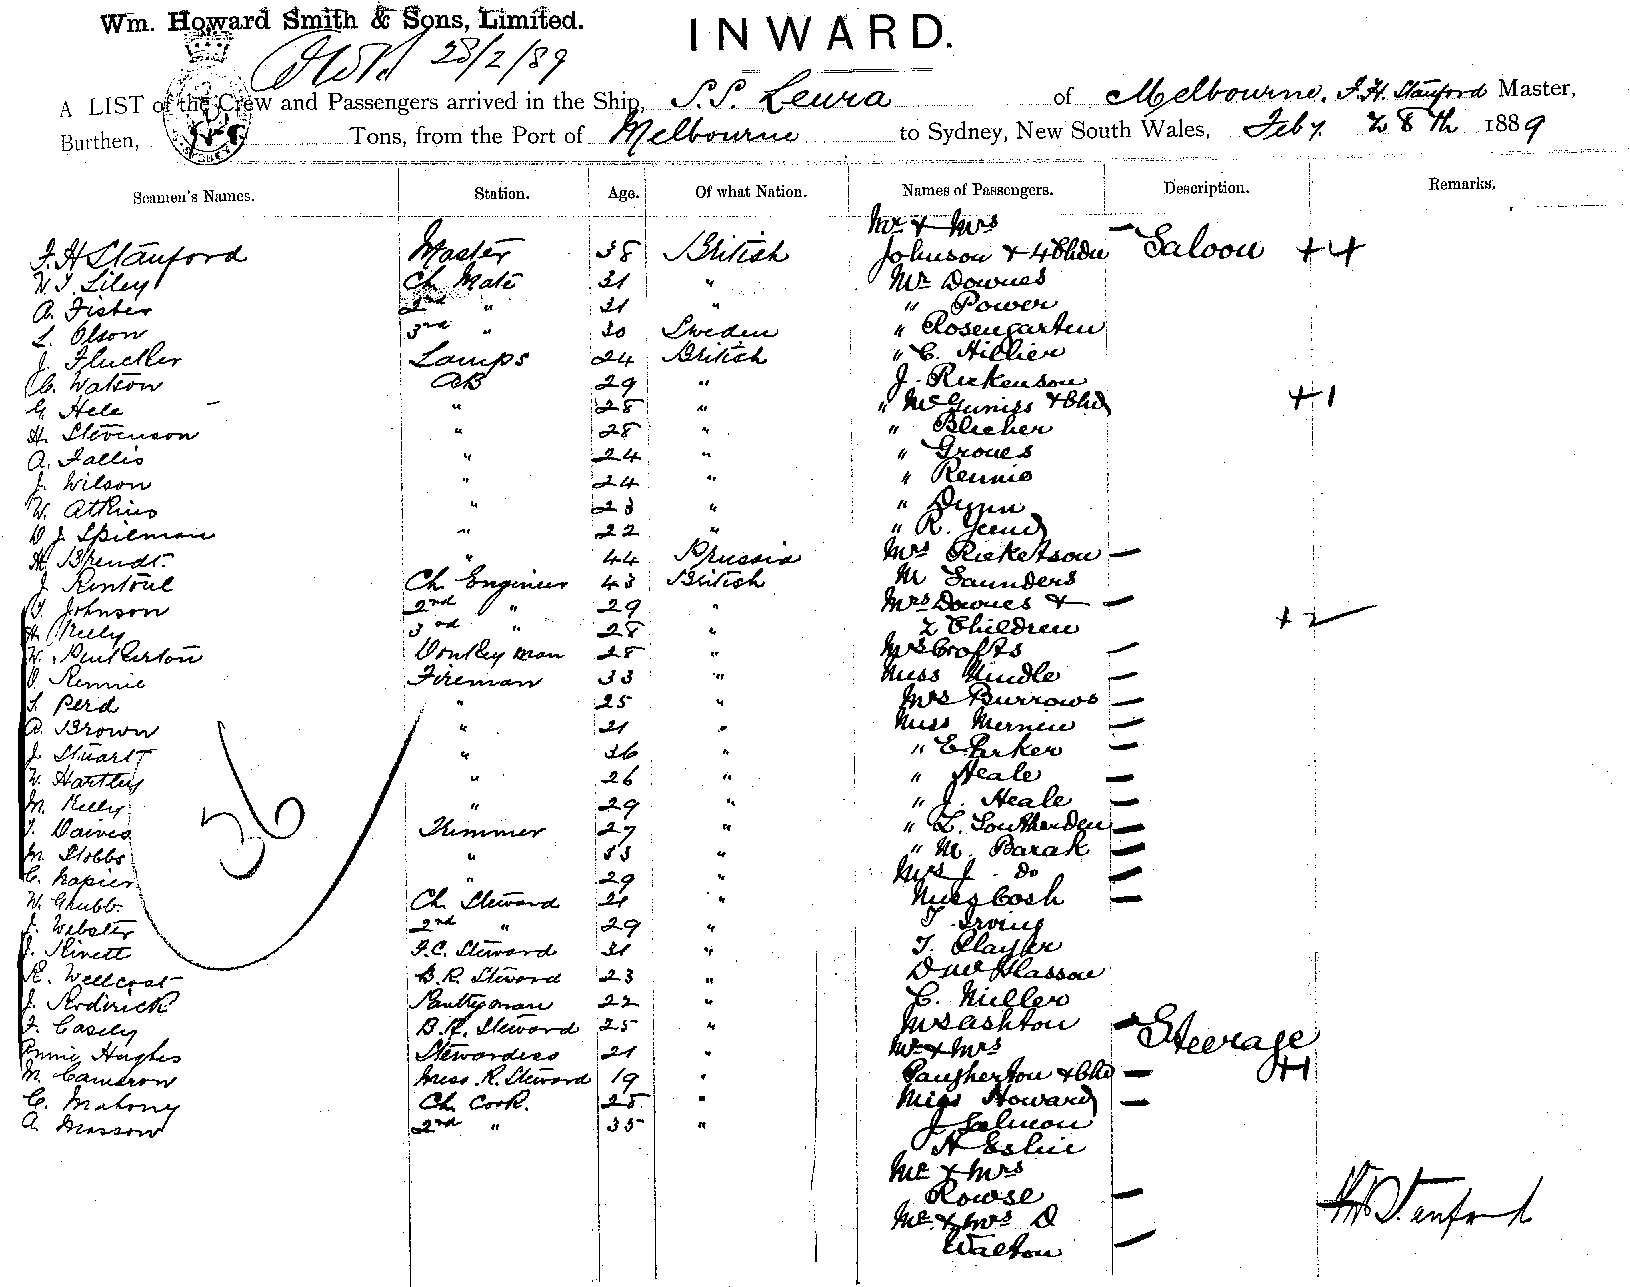 Wm. Howard Smith & Sons, Limited.
INWARD.
28/2/89
A LIST of the Crew and Passengers arrived in the Ship, S.S. Leura of Melbourne, F. H. Stanford Master,
Burthen, Tons, from the Port of Melbourne to Sydney, New South Wales, Feby. 28th 1889
Seamen's Names. Station. Age. Of what Nation. Names of Passengers. Description. Remarks.
Mr & Mrs
F. H Stanford Master 38 British Johnson & 4 Chdn Saloon +4
Liley Ch Mate 31 " Mr Downes
A. Fisher 2nd " 31 " " Power
L. Olson 3rd " 30 Sweden " Rosengarten
J. Lamps 24 British " C. Hillier
Watson AB 29 " J. Rickenson
G Hele " 28 " " McGuniss & Chd +1
H. Stevenson " 28 " " Blecher
A. Fallis " 24 " " Groves
J. Wilson " 24 " " Rennie
W. Atkins " 23 " " Dunn
D J. Spilman " 22 " " R.
H. Brendt. " 44 Prussia Mrs Ricketson
J Rintoul Ch Engineer 43 British Mr Saunders
T. Johnson 2nd " 29 " Mrs Downes &
3rd " 28 " 2 Children +2
W. Pinkerton Donkeyman 28 " Mrs Crofts
Rennie Fireman 33 " Miss Hindle
Perd " 25 " Mrs Burrows
A. Brown " 21 " Miss
J. Stuart " 36 " " E Parker
W. Hartley " 26 " " Neale
M. Kelly " 29 " " J. Neale
36
T. Daives Trimmer 27 " " L. Southerden
M. Stobbs " 33 " " M. Barak
C. Napier " 29 " Mrs J. Do
W. Chubb. Ch. Steward 21 " Miss Cosh
J. Webster 2nd " 29 " T Irving
J. Rivett F.C. Steward 31 " T. Clayter
R. Wellcoat B.R. Steward 23 "
J. Roderick Pantryman 22 " C. Miller
F. Casely B.R. Steward 25 " Mrs Ashton Steerage
Annie Hughes Stewardess 21 " Mr & Mrs
M. Cameron Mess. R. Steward 19 " & Chd +1
C. Mahony Ch Cook. 25 " Miss Howard
A. Masson 2nd " 35 " J Salmon
Mr & Mrs
Rowse
Mr. & Mrs D
Walton
Stanford